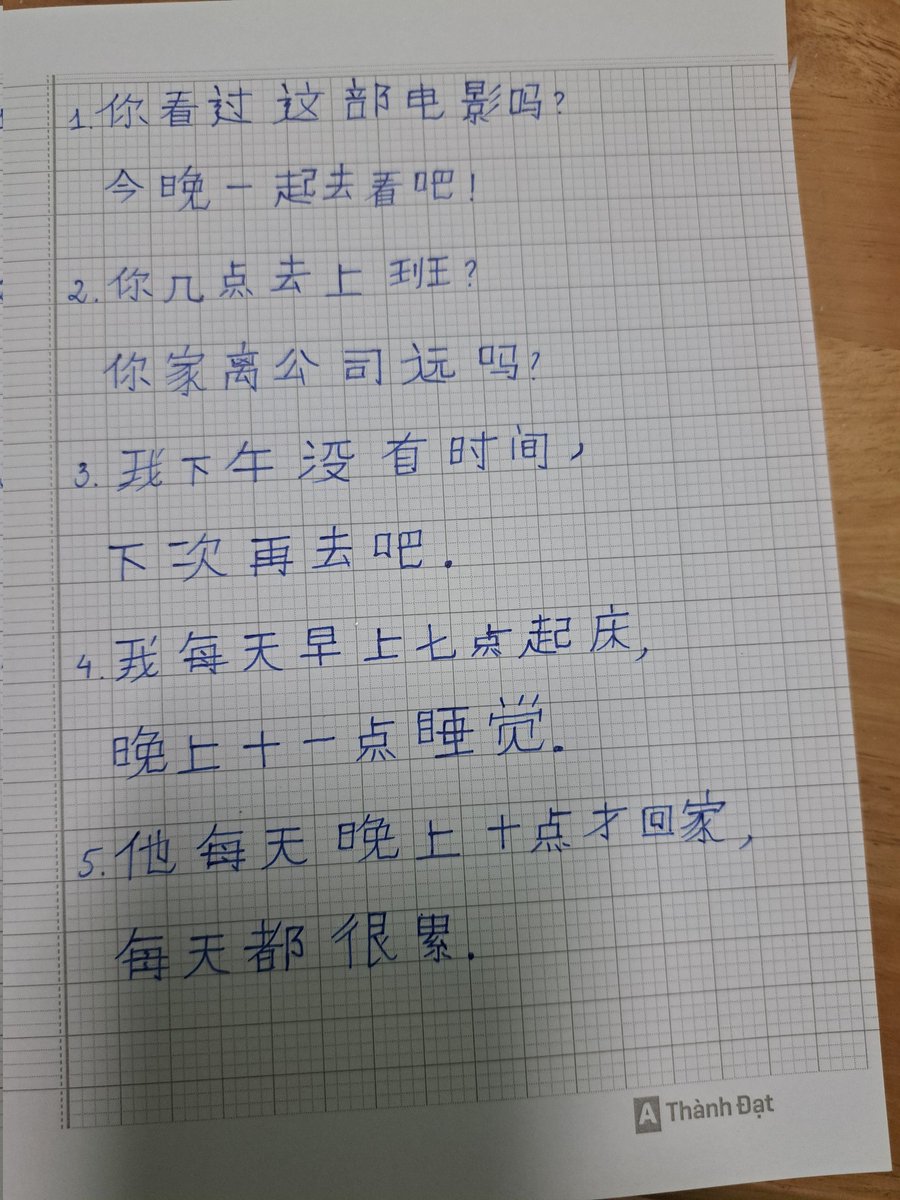 1. 你看过这部电影吗?
今晚一起去看吧!
2. 你几点去上班?
你家离公司远吗?
3. 我下午没有时间,
下次再去吧.
4. 我每天早上七点起床,
晚上十一点睡觉.
5. 他每天晚上十点才回家,
每天都很累.
A Thành Đạt